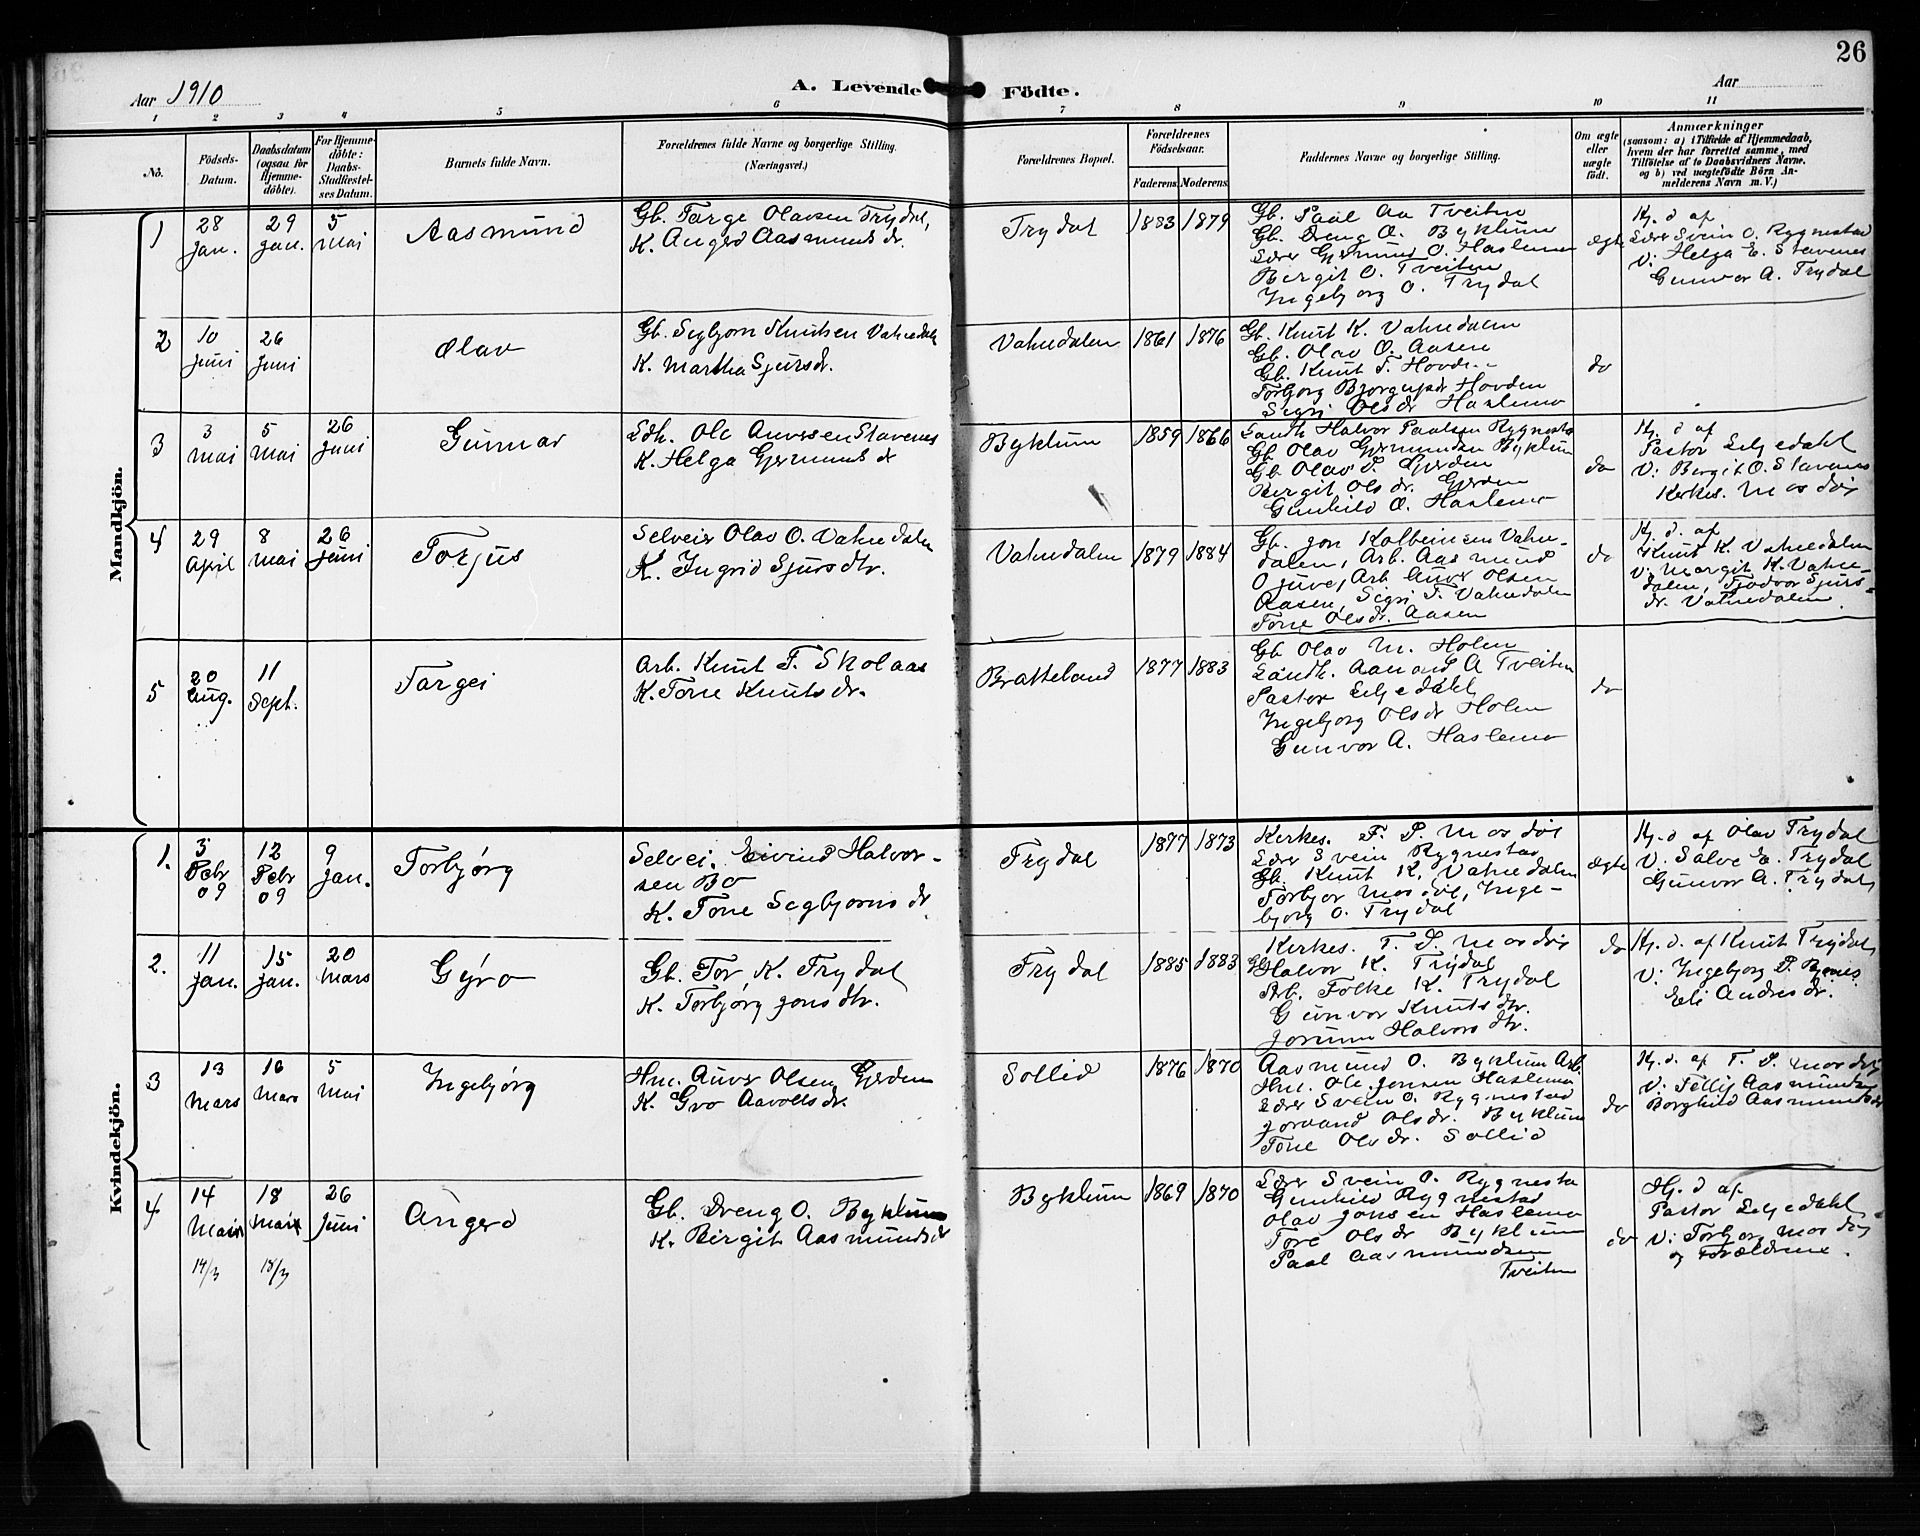 26
Aar 1910
A. Levende Födte.
Aar
1 2 3 4 5 6 7 8 9 10 11
No.
Födsels-
Datum.
Daabsdatum
(ogsaa for
Hjemme-
döbte).
For Hjemme-
döbte:
Daabs-
Stadfæstel-
ses Datum.
Barnets fulde Navn.
Forældrenes fulde Navne og borgerlige Stilling.
(Næringsvei.)
Forældrenes Bopæl.
Forældrenes
Födselsaar.
Faderens. Moderens.
Faddernes Navne og borgerlige Stilling.
Om ægte
eller
uægte
födt.
Anmærkninger
(saasom: a) i Tilfælde af Hjemmedaab,
hvem der har forrettet samme, med
Tilföielse af to Daabsvidners Navne.
og b) ved uægtefödte Börn An-
melderens Navn m. V.)
Mandkjön.
1
28
Jan.
29
Jan.
5
Mai
Aasmund
Gb. Targe Olavsen Trydal,
K. Angerd Aasmundsdr.
Trydal
1883 1879
Gb. Paal Aa Tveiten
Gb. Dreng O. Byklum
Lærer Gjermund O. Haslemo
Bergit O. Tveiten
Ingebjorg O. Trydal
ægte
Hj. d af
Lærer Svein O. Rygnestad
V: Helga E. Stavenes
Gunvor A. Trydal
2
10
Juni
26
Juni
Olav
Gb. Sigbjorn Knutsen Vatnedalen
K. Martha Sjursdr.
Vatnedalen
1861 1876
Gb. Knut K. Vatnedalen
Gb. Olav O. Aasen
Gb. Knut T. Hovden
Torbjorg Bjorgulfsdr Hovden
Sigri Olsdr Haslemo
do
3
3
Mai
5
Mai
26
Juni
Gunnar
Ldh. Ole Anversen Stavenes
K. Helga Gjermundsdr
Byklum
1859 1866
Landh. Halvor Paalsen Rygnestad
Gb. Olav Gjermundsen Byklum
Gb. Olav S. Gjerden
Bergit Olsdr. Gjerden
Gunhild O. Haslemo
do
Hj. d af
Pastor Liljedahl
V: Bergit O. Stavenes
Kerkes. Mosdöl
4
29
April
8
Mai
26
Juni
Torjus
Selveier Olav O. Vatnedalen
K. Ingrid Sjursdtr.
Vatnedalen
1879 1884
Gb. Jon Kolbeinsen Vatne-
dalen, Arb. Aasmund
Ojuve, Arb Anver Olsen
Aasen, Sigri T. Vatnedalen
Tone Olsdr. Aasen
do
Hj. d. af
Knut K. Vatnedalen
V: Margit K. Vatne-
dalen, Tjodvor Sjurs-
dr. Vatnedalen.
5
20
Aug.
11
Sept.
Targei
Arb. Knut T. Skolaas
K. Tone Knutsdr.
Bratteland
1877 1883
Gb Olav M. Holen
Landh. Aanond A Tveiten
Pastor Liljedahl
Ingebjorg Olsdr Holen
Gunvor A. Haslemo
do
Kvindekjön.
1.
3
Febr
09
12
Febr
09
9
Jan.
Torbjörg
Selvei. Eivind Halvor-
sen Bö
K. Tone Sigbjornsdr
Trydal
1877 1873
Kerkes. T. P. Mosdöl
Lærer Svein Rygnestad
Gb. Knut K. Vatnedalen
Torbjor Mosdöl, Inge-
bjorg O. Trydal
ægte
Hj. d af Olav Trydal
V. Salve E. Trydal
Gunvor A. Trydal
2.
11
Jan.
15
Jan.
20
Mars
Gyro
Gb. Tor K. Trydal
K. Torbjörg Jonsdtr.
Trydal
1885 1883
Kerkes. T. P. Mosdöl
Gb Halvor K. Trydal
Arb. Folke K. Trydal
Gunvor Knutsdtr.
Jorunn Halvorsdtr.
do
Hj. d. af Knut Trydal
V: Ingebjorg P. Bjenes
Eli Andresdr.
3
13
Mars
16
Mars
5
Mai
Ingebjörg
Hm. Anver Olsen Gjerden
K. Gro Aavoltsdr.
Sollid
1876 1870
Aasmund O. Byklum Arb.
Hm. Ole Jonsen Haslemo
Lærer Svein O. Rygnestad
Jorand Olsdr. Byklum
Tone Olsdr. Sollid
do
Hj. d. af T. P. Mosdöl
V: Tellif Aasmundsen
Borghild Aasmundsdr
4
14
Mars
14/3
18
Mars
18/3
26
Juni
Angerd
Gb. Dreng O. Byklum
K. Birgit Aasmundsdr
Byklum
1869 1870
Lærer Svein O. Rygnestad
Gunhild Rygnestad
Olav Jonsen Haslemo
Tore Olsdr Byklum
Paal Aasmundsen
Tveiten
do
Hj. d af
Pastor Liljedahl
V: Torbjorg Mosdöl
og Forældrene.